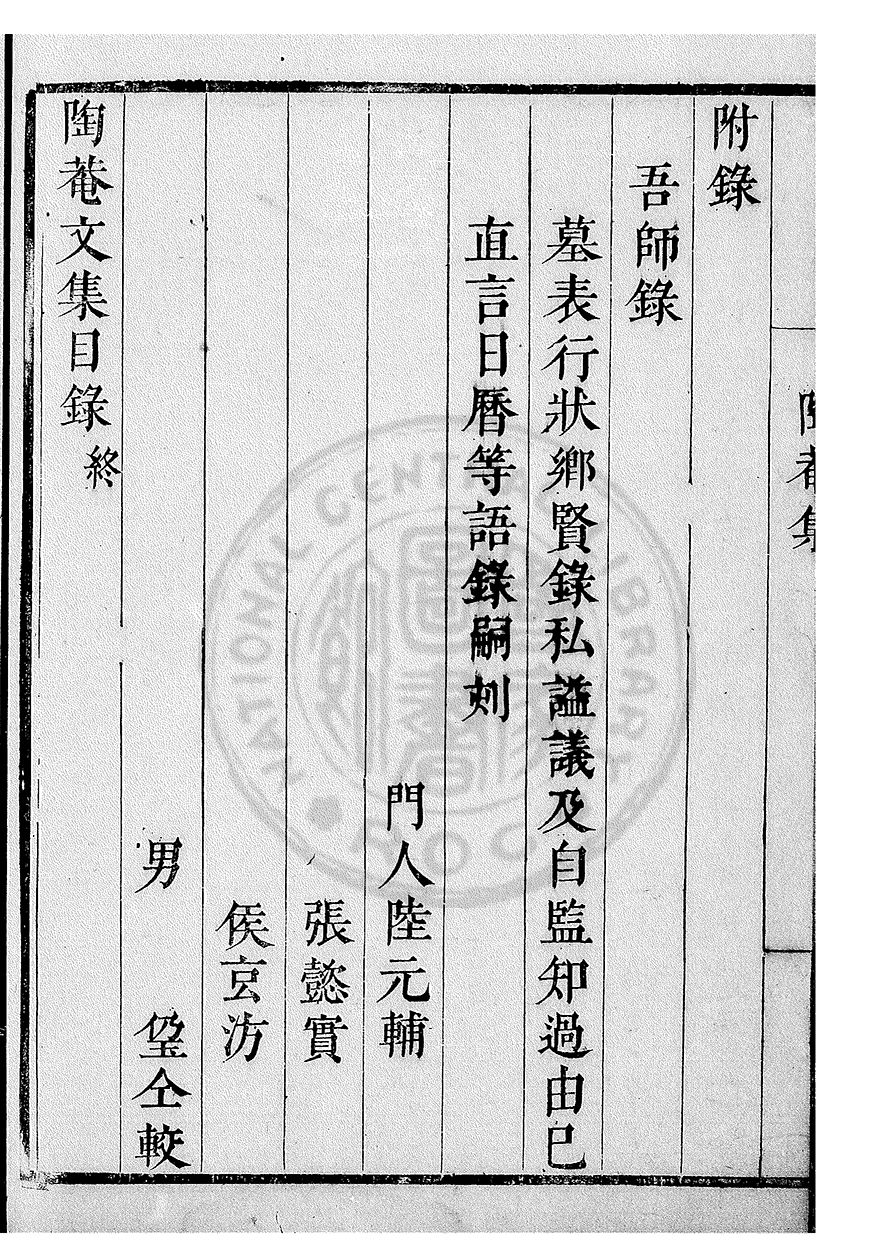 陶菴集
附錄
吾師錄
墓表行狀鄉賢錄私謚議及自監知過由已
直言日曆等語錄嗣刻
門人陸元輔
張懿實
侯玄汸
男 仝較
陶菴文集目錄終
NATIONAL CENTRAL LIBRARY
R.O.C